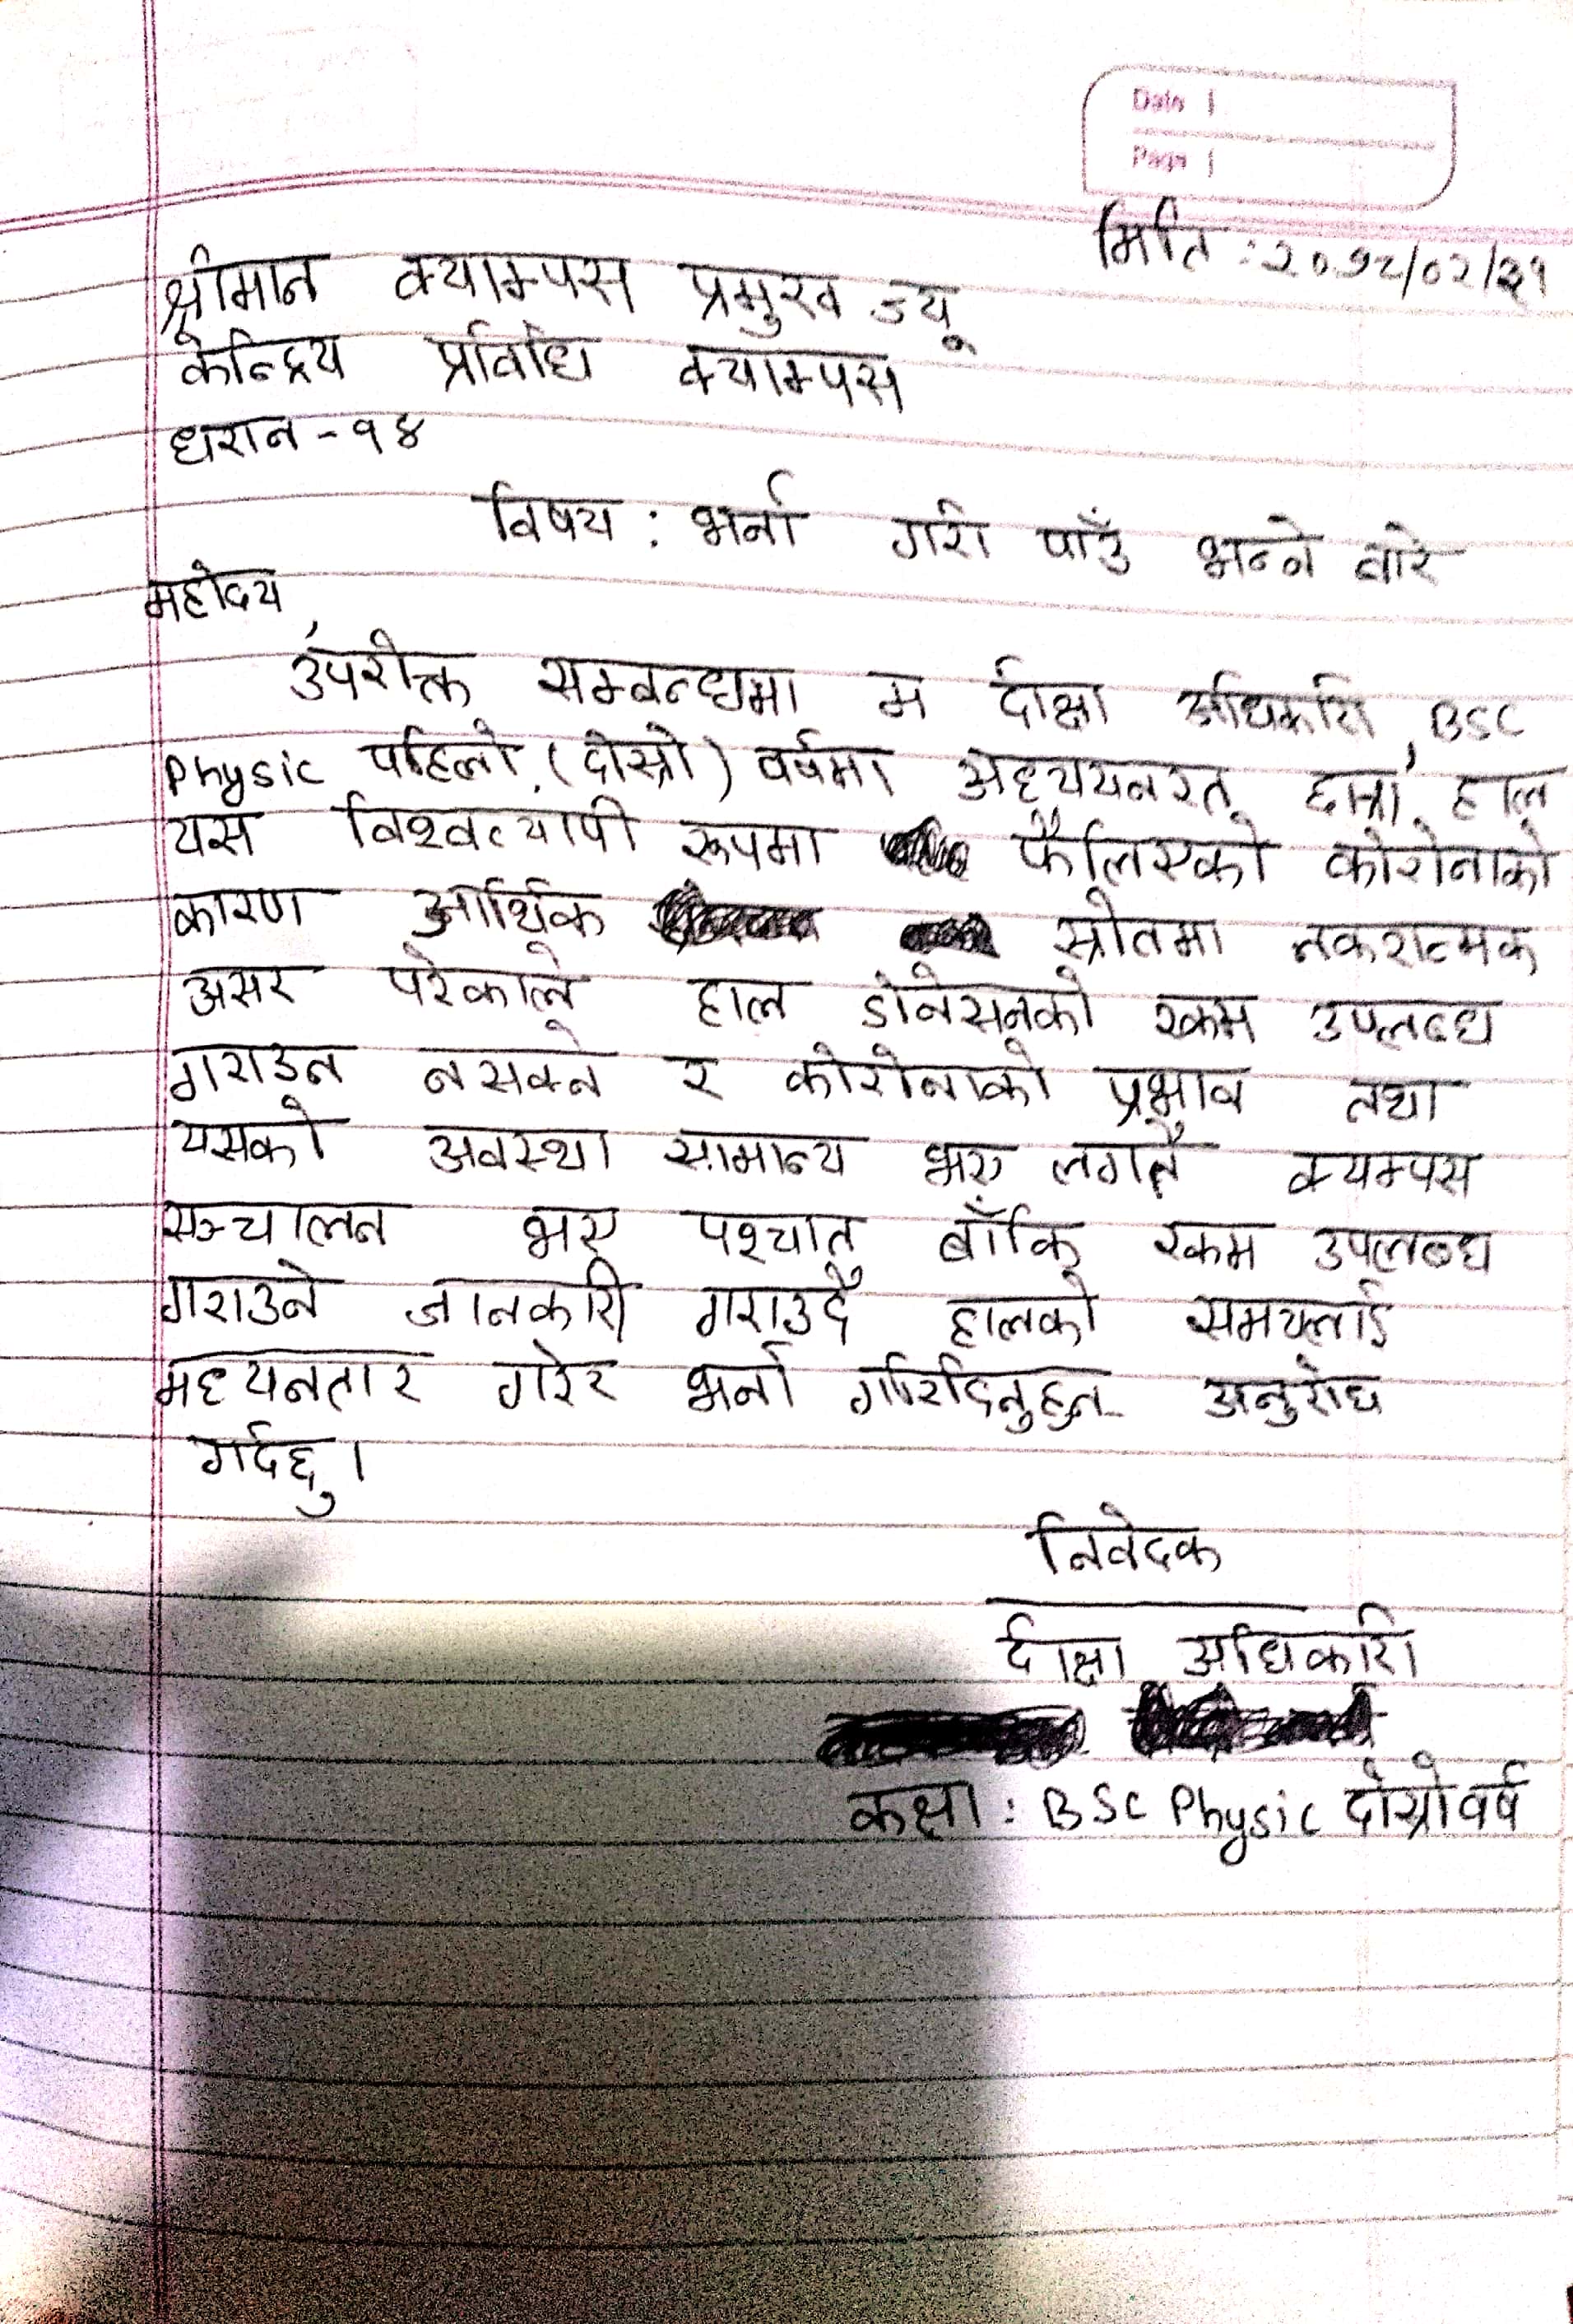 Date
Page
मिति : २०७८/०२/३१
श्रीमान क्याम्पस प्रमुख ज्यू
केन्द्रिय प्रविधि क्याम्पस
धरान - १४
विषय : भर्ना गरी पाँउ भन्ने बारे
महोदय,
उपरोक्त सम्बन्धमा म दीक्षा अधिकारी, BSC
Physic पहिलो (दोस्रो) वर्षमा अध्ययनरत छात्रा, हाल
यस विश्वव्यापी रूपमा फैलिएको कोरोनाको
कारण आर्थिक स्रोतमा नकरात्मक
असर परेकाले हाल डोनेसनको रकम उपलब्ध
गराउन नसक्ने र कोरोनाको प्रभाव तथा
यसको अवस्था सामान्य भए लगत्तै क्यम्पस
सञ्चालन भए पश्चात् बाँकि रकम उपलब्ध
गराउने जानकारी गराउदै हालको समयलाई
मध्यनतार गरेर भर्ना गरिदिनुहुन अनुरोध
गर्दछु ।
निवेदक
दीक्षा अधिकारी
कक्षा : BSC Physic दोस्रो वर्ष